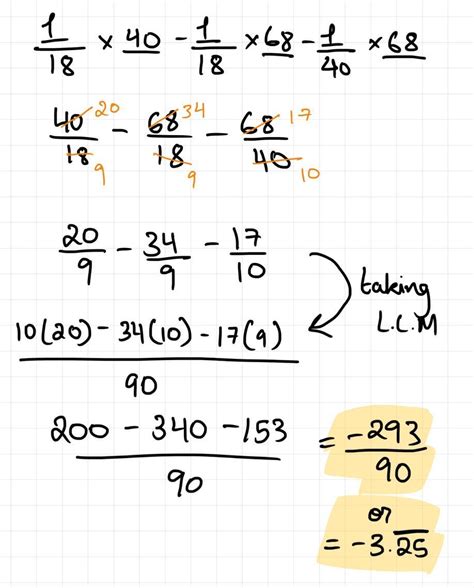 1/18 × 40 - 1/18 × 68 - 1/40 × 68
40/18 - 68/18 - 68/40
20 34 17
9 9 10
20/9 - 34/9 - 17/10
taking
L.C.M
10(20) - 34(10) - 17(9)
90
200 - 340 - 153
90
= -293/90
or
= -3.2̅5̅